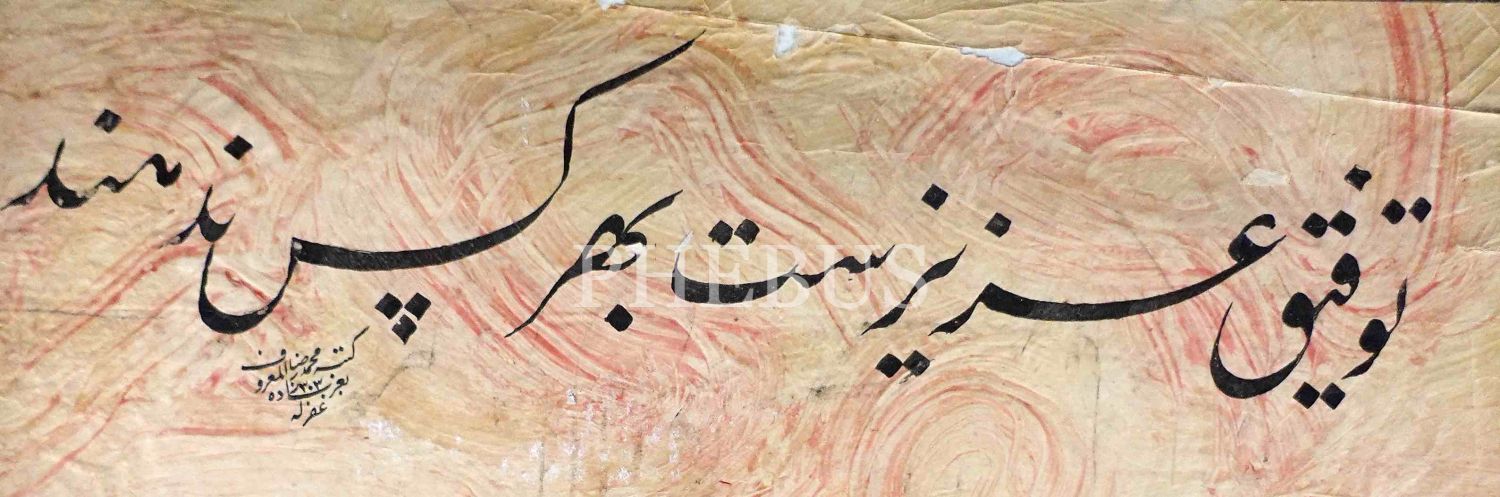 توفیق عزیزست بهر کس ندهند
کتبه محمدرضا المعروف
بعرب زاده ۱۳۰۳
غفر له
PHEBUS